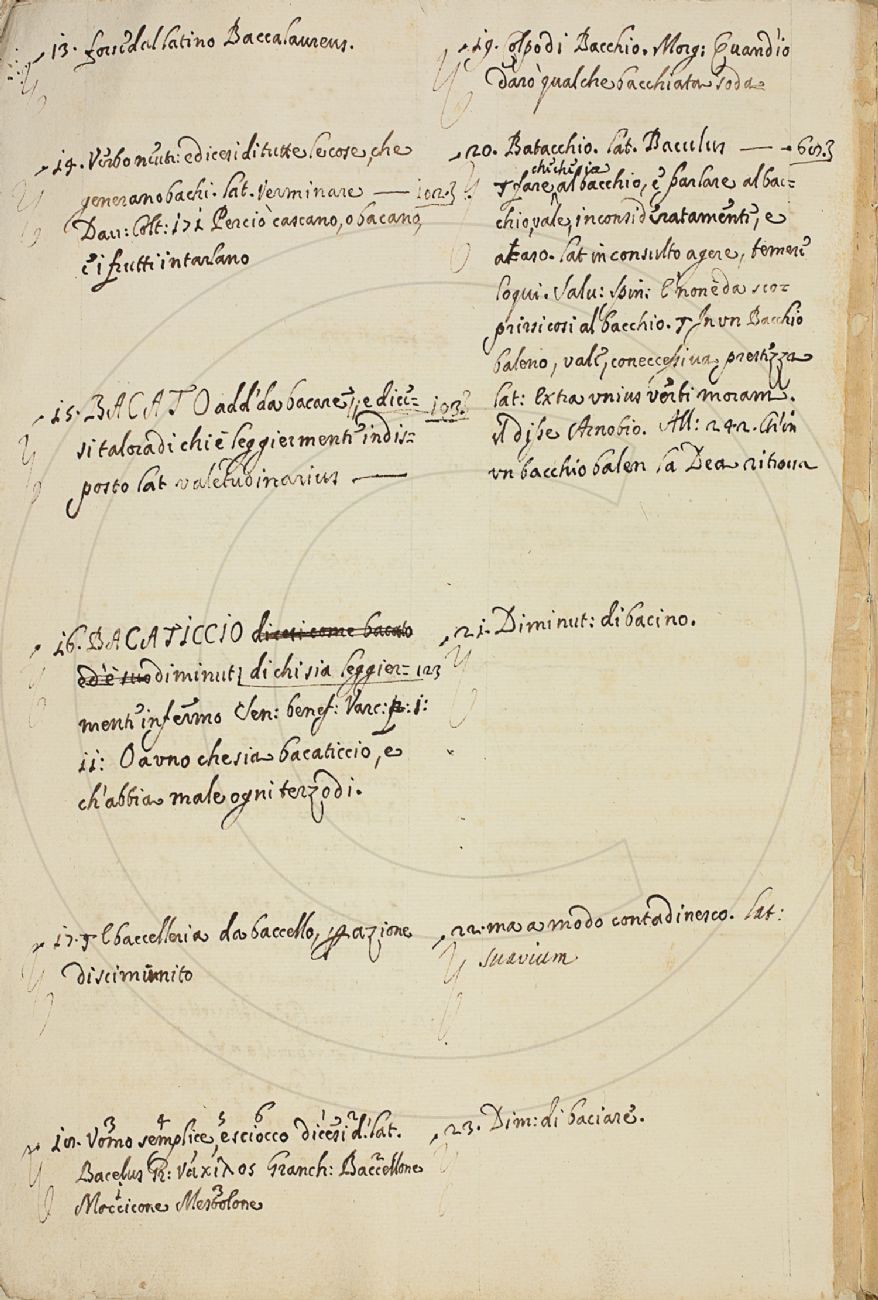 13. forse dal latino Baccalaureus.
14. Verbo neut: e dicesi di tutte le cose, che
generano bachi. lat. verminare — 102.3
Dav: Colt: 171 Perciò cascano, o bacano,
e i frutti intarlano
15. BACATO add: da bacare, e dice=
si talora di chi è leggiermente indis=
posto lat valetudinarius —
16. BACATICCIO dicesi come bacato
ed è suo diminut: di chi sia leggier= 123
mente infermo Sen: benef: Varc: p: 1:
11: O a vno che sia bacaticcio, e
ch'abbia male ogni terzo di.
17. † E baccelleria da baccello, azione
di scimunito
Vomo semplice, e sciocco dicesi d. lat.
Bacelus Gr: βάκηλος Granch: Baccellone
Moccicone Merlone
19. Colpo di Bacchio. Morg: Quand'io
darò qualche bacchiata soda
20. Batacchio. lat. Baculus —
† fare, chi chi sia al bacchio, è parlare al bac=
chio, vale, inconsideratamente, e
a caso. lat inconsulto agere, temere
loqui. Salv: Spin: E' non è da sco=
prirsi così al bacchio. † In vn Bacchio
baleno, vale, con eccessiva prestezza
lat: Extra vnius verbi moram.
il disse Arnobio. All: 242. Ch'in
vn bacchio balen la Dea ritrova
21. Diminut: di bacino.
22. ma a modo contadinesco. lat:
suavium
23. Dim: di baciare.